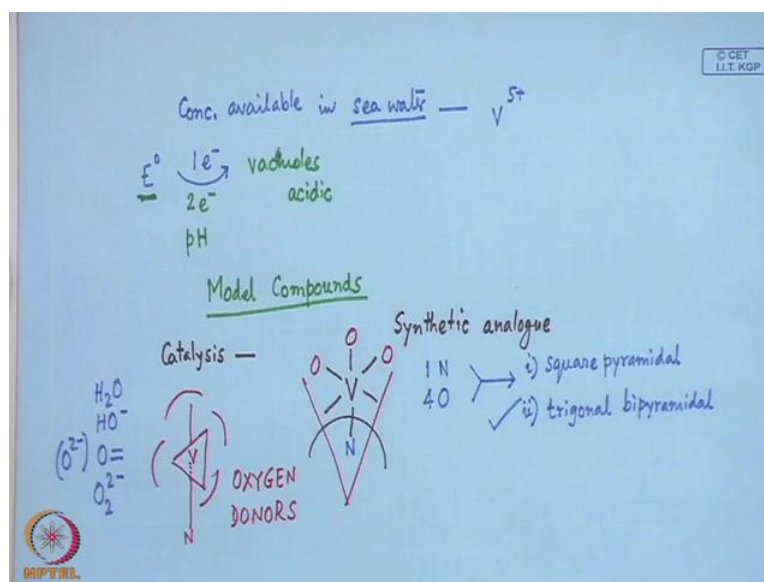 © CET
I.I.T. KGP
Conc. available in sea water — V5+
E° 1e⁻ vacuoles
2e⁻ acidic
pH
Model Compounds
Synthetic analogue
Catalysis —
O O O
V
N
1 N
4 O
i) square pyramidal
ii) trigonal bipyramidal
H₂O
HO⁻
(O²⁻) O=
O₂²⁻
V
N
OXYGEN
DONORS
NPTEL